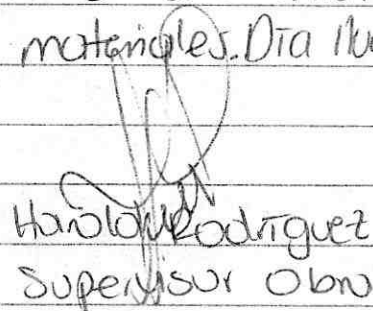 materiales. Dia
Harold Rodriguez
Supervisor Obra